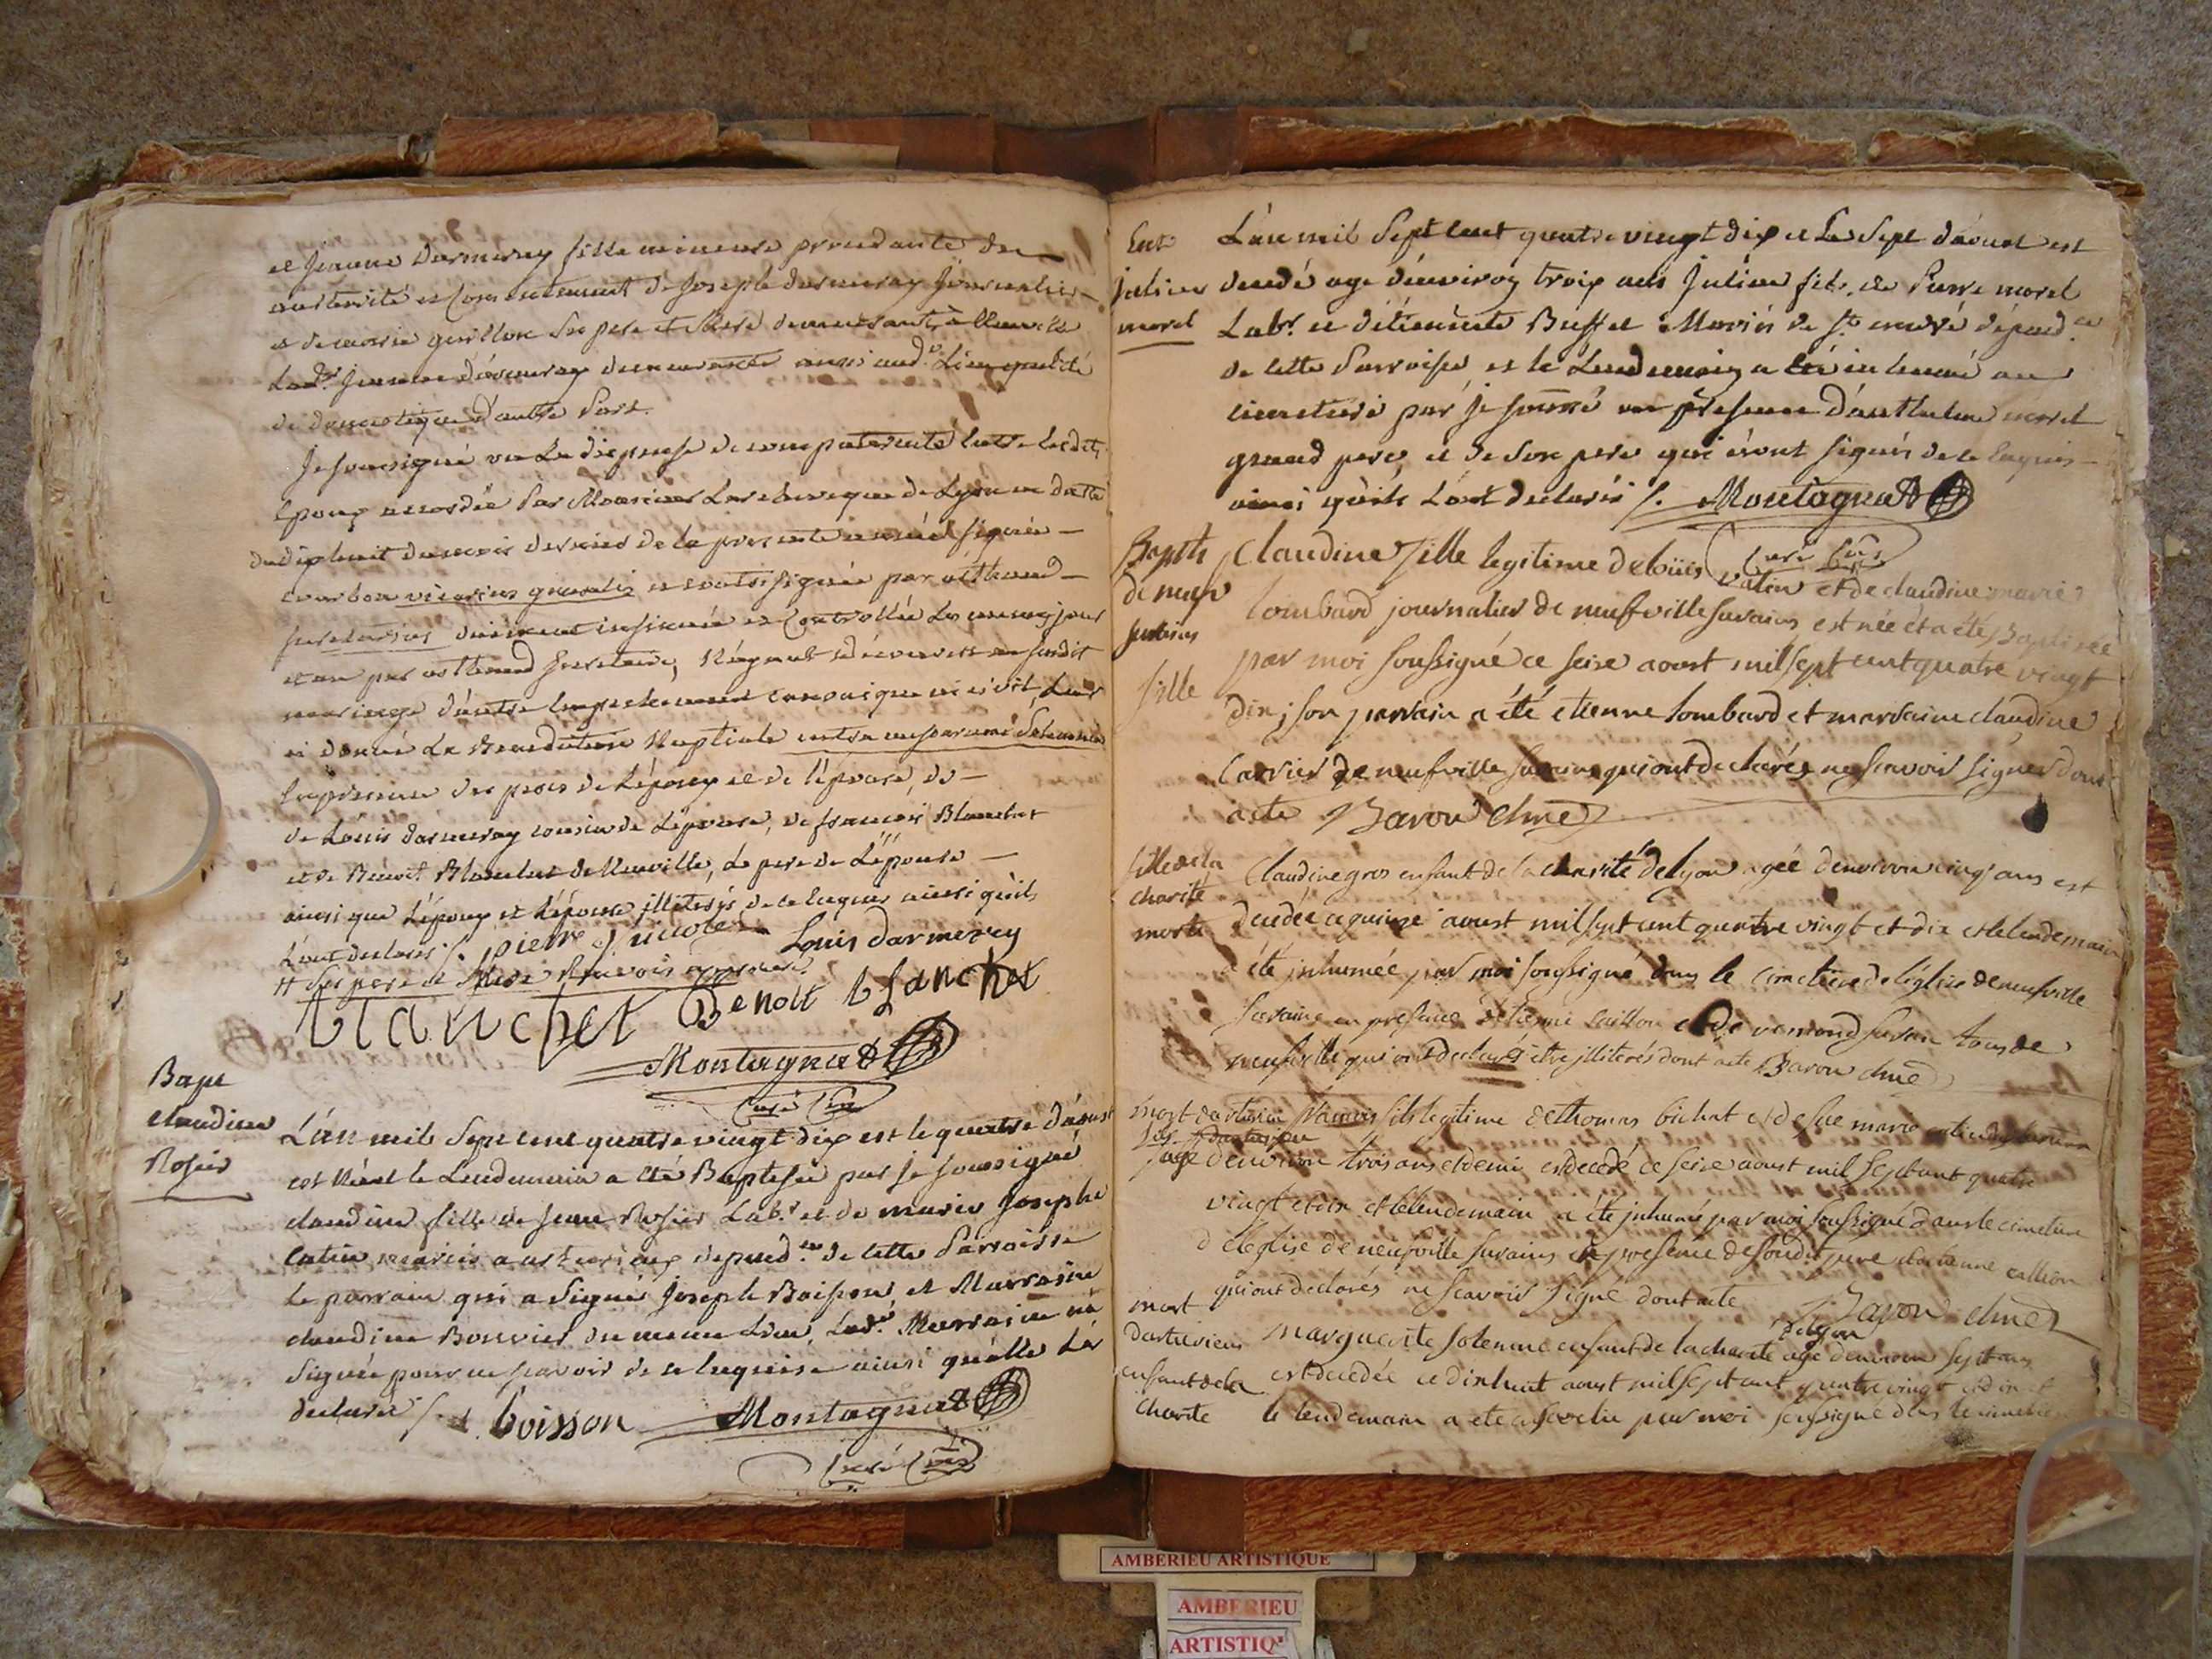 et jeanne Darmeray fille mineure procedante de
authorité et Consentement de Joseph darmeray journalier
et de marie guillon Ses pere et Mere demeurants à Neuville
Lad.e jeanne darmeray demeurante aussi aud.t Lieu qualité
de domestique d'autre Part.
Je soussigné vu La dispense de comparternité entre lesdits
Epoux accordée Par Monsieur L'archeveque de Lyon en datte
du dix huit du mois dernier de la presente année signée
courbon vicarius generalis et contresignée par
duement insinuée et Controllée Le meme jour
et an par secretaire, N'ayant découvert au susdit
mariage d'autre empechement canonique ni civil, Leur
ai donné La Benediction Nuptiale
En presence des peres de L'époux et de l'épouse, de
de Louis darmeray cousin de L'épouse, de francois Blanchet
et de Benoit Blanchet de Neuville, Le pere de L'épouse
ainsi que L'époux et L'épouse illiterés de ce enquis ainsi qu'ils
L'ont declaré /. pierre Louis darmerey
# Ses pere et Mere Renvois approuvé
blanchet Benoit blanchet
Montagnat
Curé
Bapt
claudine
Rosier
L'an mil Sept cent quatre vingt dix et le quatre d'aoust
est Née et le Lendemain a été Baptisée par je soussigné
claudine fille de Jean Rosier Lab.r et de marie Josephe
catin mariés a depend.ce de cette Parroisse
Le parrain qui a Signé Joseph Boisson et Marraine
claudine Bouvier du meme Lieu, Lad.e Marraine n'a
Signée pour ne scavoir de ce enquise ainsi qu'elle L'a
declaré /. boisson Montagnat
Curé
Ent
julien
morel
L'an mil Sept cent quatre vingt dix et Le Sept d'aoust est
decedé agé d'environ trois ans Julien fils de Pierre morel
Lab.r et d'étiennete Buffet Mariés de S.t andré dépend.ce
de cette Parroisse et le Lendemain a été inhumé au
cimetiere par je soussigné en presence d'anthelme morel
grand pere et de Son pere qui n'ont signés de ce Enquis
ainsi qu'ils L'ont declarés /. Montagnat
Curé
Bapth
de neuf
surains
fille
Claudine fille legitime de loüis valin et de claudine marie
lombard journalier de neufville surains est née et a été Baptisée
par moi soussigné ce seise aoust mil sept cent quatre vingt
dix ; son parrain a été etienne lombard et marraine claudine
carrier de neufville surains qui ont declarés ne scavoir signer dont
acte Baron
fille de la
charité
morte
Claudine gros enfant de la charité de lyon agée d'environ cinq ans est
decedée ce quinze aoust mil sept cent quatre vingt et dix et le lendemain
a été inhumée par moi soussigné dans le cimetiere de l'église de neufville
surains en presence d'etienne caillon et de tous de
neufville qui ont declarés etre illiterés dont acte Baron
mort
francois fils legitime de thomas bichat et de sue marie
agé d'environ trois ans et demi est decedé ce seise aoust mil sept cent quatre
vingt et dix et le lendemain a été inhumé par moi soussigné dans le cimetiere
d'eglise de neufville surains en presence de son dit pere et etienne caillon
qui ont declarés ne scavoir signé dont acte Baron
mort
enfant de la
charité
marguerite solenne enfant de la charité de lyon agé d'environ sept ans
est decedée ce dix huit aoust mil sept cent quatre vingt et dix et
le lendemain a été ensevelie par moi soussigné dans le cimetiere
AMBERIEU ARTISTIQUE
AMBERIEU
ARTISTIQ